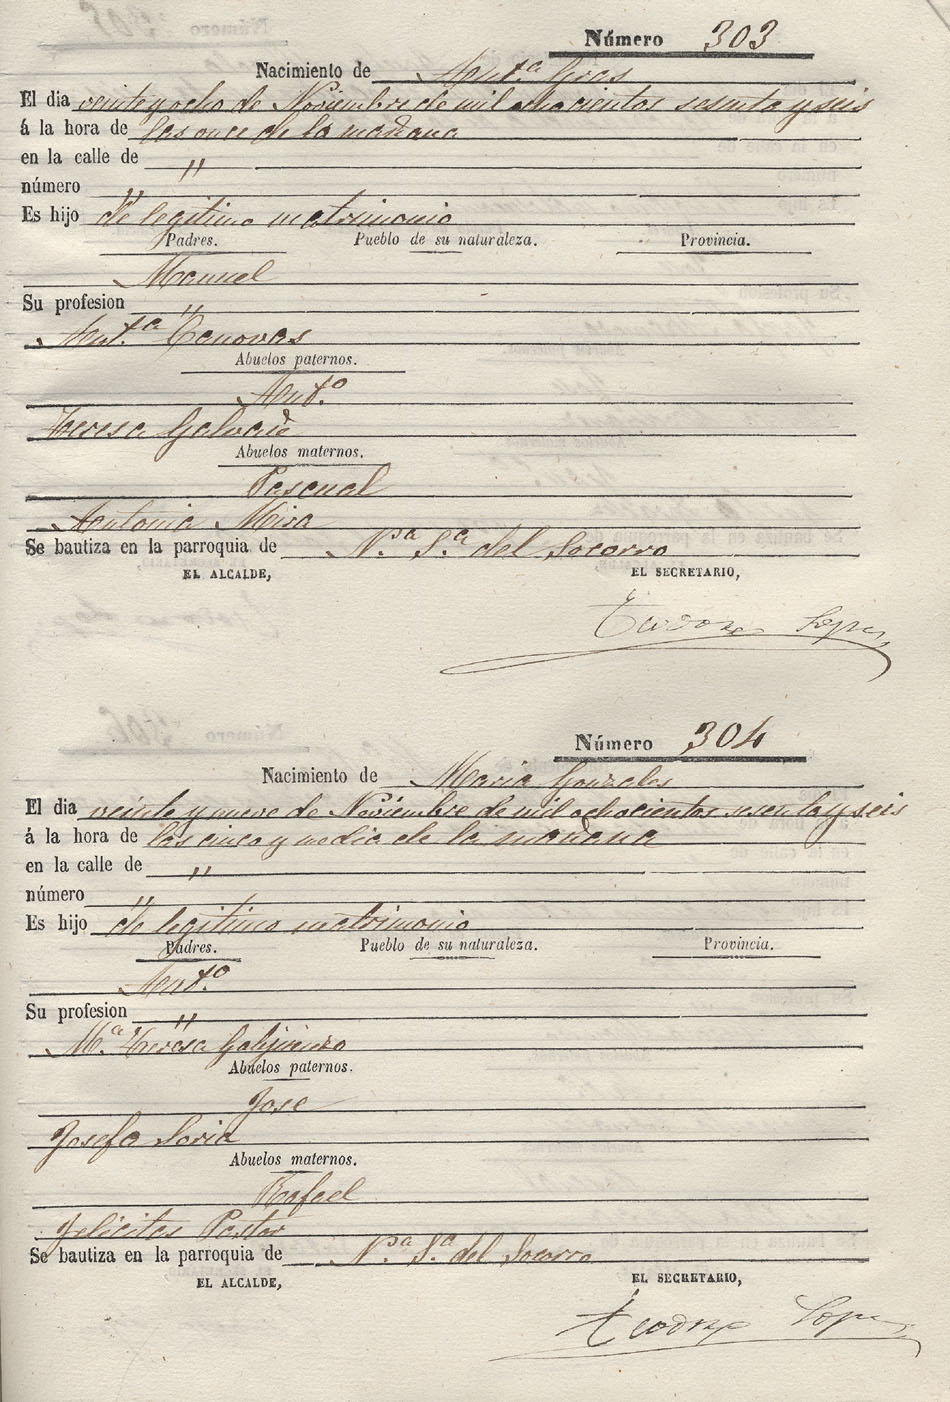 Número 303
Nacimiento de Ant.ª Gras
El dia veinte y ocho de Noviembre de mil ochocientos sesenta y seis
á la hora de las once de la mañana
en la calle de "
número "
Es hijo de legitimo matrimonio
Padres. Pueblo de su naturaleza. Provincia.
Manuel
Su profesion "
Ant.ª Canovas
Abuelos paternos.
Ant.º
Teresa Galvañ
Abuelos maternos.
Pascual
Antonia Mira
Se bautiza en la parroquia de N.ª S.ª del Socorro
EL ALCALDE, EL SECRETARIO,
Teodoro Lopez
Número 304
Nacimiento de Maria Gonzales
El dia veinte y nueve de Noviembre de mil ochocientos sesenta y seis
á la hora de las cinco y media de la mañana
en la calle de "
número "
Es hijo de legitimo matrimonio
Padres. Pueblo de su naturaleza. Provincia.
Ant.º
Su profesion "
M.ª Teresa
Abuelos paternos.
Jose
Josefa Soria
Abuelos maternos.
Rafael
Felicitas Pastor
Se bautiza en la parroquia de N.ª S.ª del Socorro
EL ALCALDE, EL SECRETARIO,
Teodoro Lopez